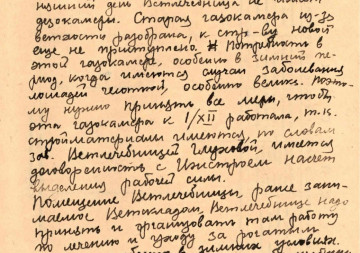 нешний день Ветлечебница не имеет
газокамеры. Старая газокамера из-за
ветхости разобрана, к стр-ву новой
еще не приступлено. Потребность в
этой газокамере, особенно в зимний пе-
риод, когда имеются случаи заболевания
лошадей чесоткой, особенно велика. Поэто-
му нужно принять все меры, чтобы
эта газокамера к 1/XII работала, т.к.
стройматериалы имеются, по словам
зав. Ветлечебницей Глуховой, имеется
договоренность с Южстроем насчет
выделения рабочей силы.
Помещение Ветлечебницы ранее зани-
маемое Ветскладом, Ветлечебнице надо
принять и организовать там работу
по лечению и уходу за рогатым
в зимних условиях.